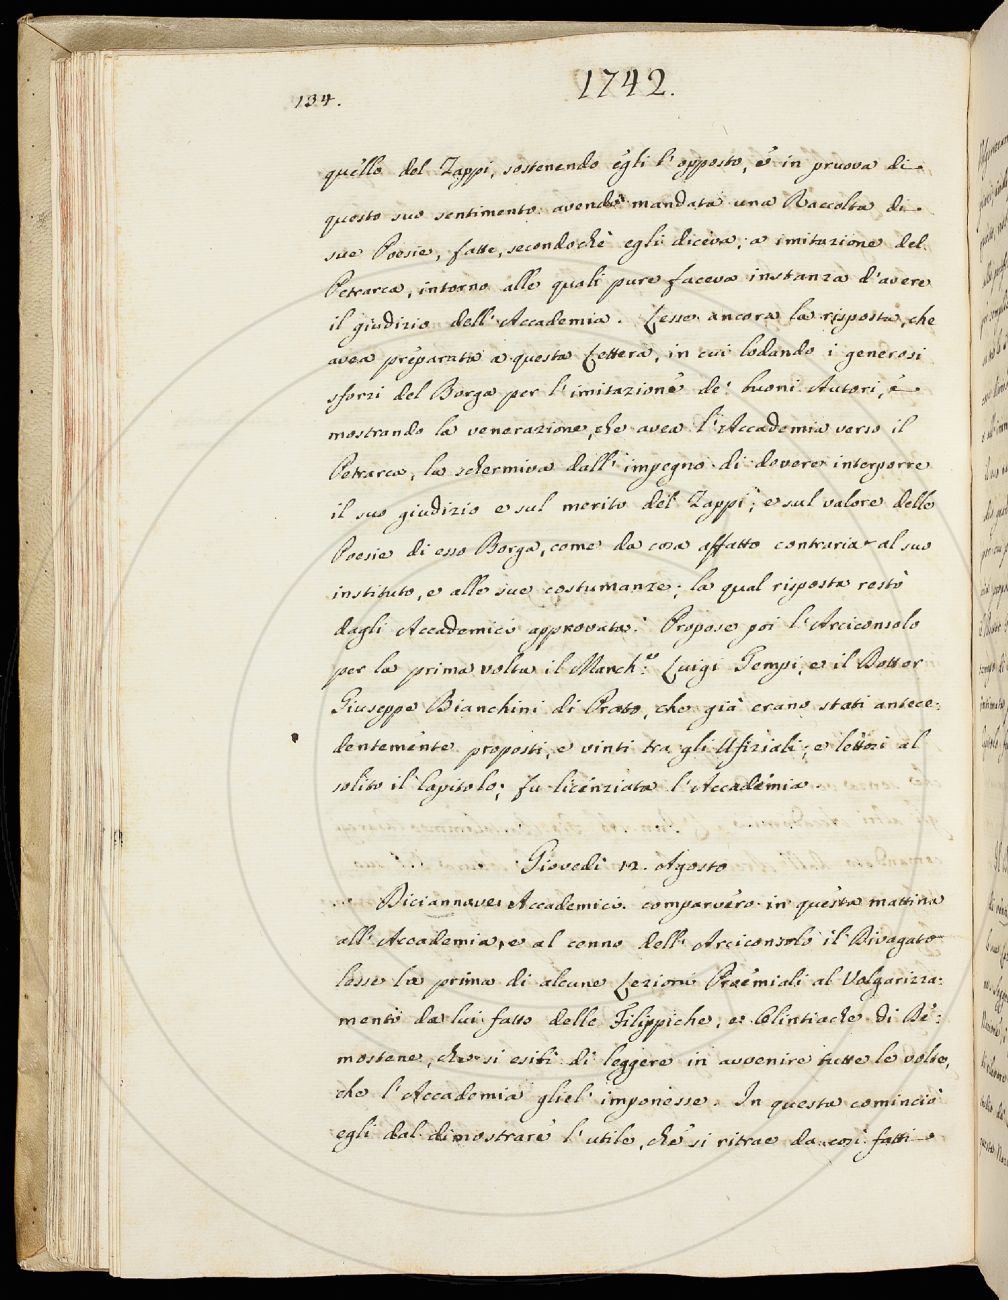 134.
1742.
quello del Zappi, sostenendo egli l'opposto, e in pruova di
questo suo sentimento avendo mandata una Raccolta di
sue Poesie, fatte, secondochè egli diceva, a imitazione del
Petrarca, intorno alle quali pure faceva instanza d'avere
il giudizio dell'Accademia. Lesse ancora la risposta, che
avea preparatta a questa Lettera, in cui lodando i generosi
sforzi del Borga per l'imitazione de' buoni Autori, e
mostrando la venerazione, che avea l'Accademia verso il
Petrarca, la schermiva dall'impegno di dovere interporre
il suo giudizio e sul merito del Zappi, e sul valore delle
Poesie di esso Borga, come da cosa affatto contraria al suo
instituto, e alle sue costumanze; la qual risposta restò
dagli Accademici approvata. Propose poi l'Arciconsolo
per la prima volta il March.e Luigi Tempi, e il Dottor
Giuseppe Bianchini di Prato, che già erano stati antece:
dentemente proposti, e vinti tra gli Ufiziali; e lettosi al
solito il Capitolo, fu licenziata l'Accademia
Giovedì 12. Agosto
Diciannove Accademici comparvero in questa mattina
all'Accademia, e al cenno dell'Arciconsolo il Divagato
lesse la prima di alcune Lezioni Proemiali al Volgarizza:
mento da lui fatto delle Filippiche, e Olintiache di De:
mostene, che si esibì di leggere in avvenire tutte le volte,
che l'Accademia gliel'imponesse. In questa cominciò
egli dal dimostrare l'utile, che si ritrae da così fatti